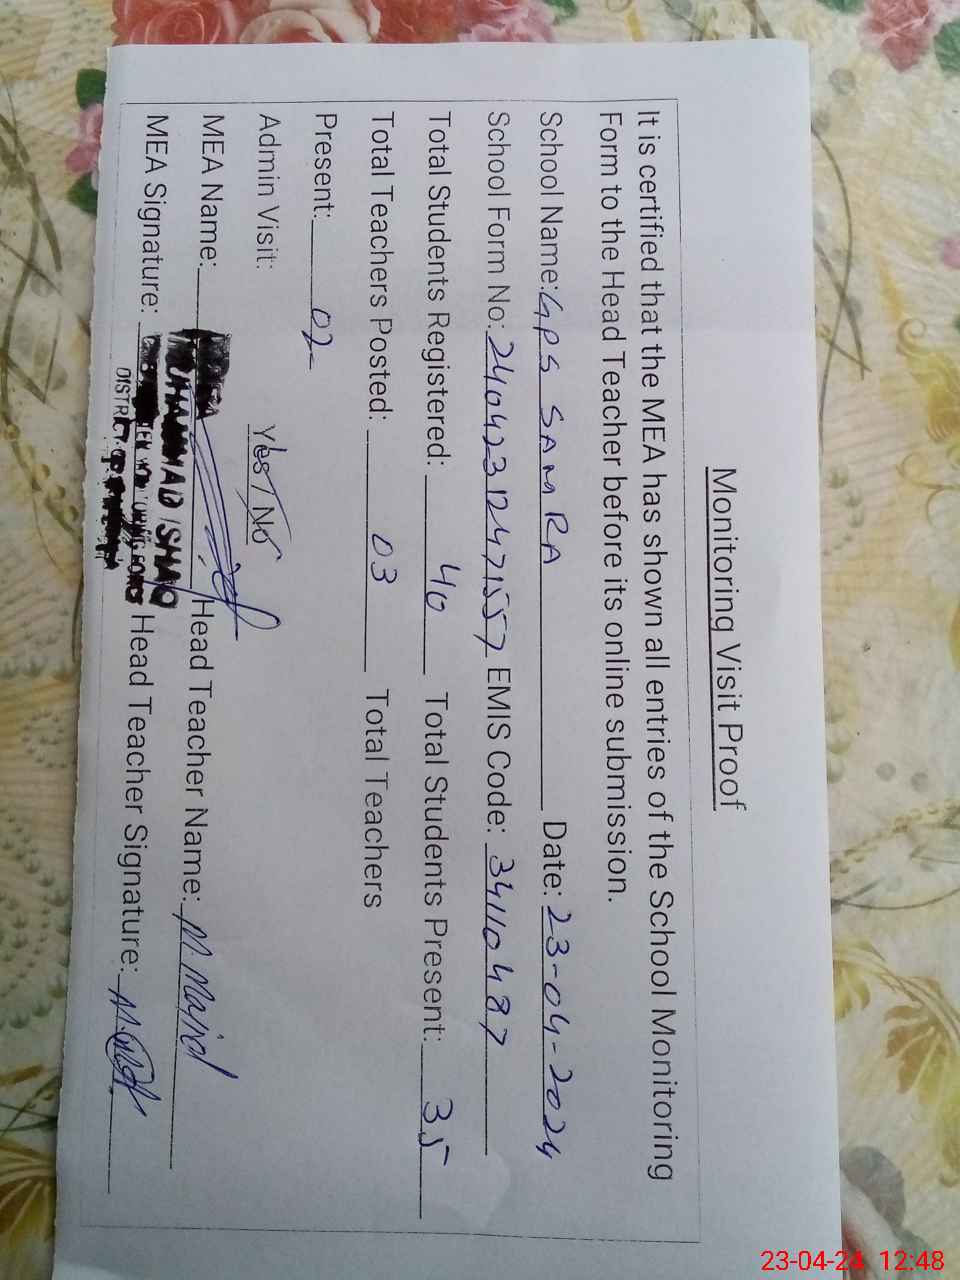 Monitoring Visit Proof
It is certified that the MEA has shown all entries of the School Monitoring
Form to the Head Teacher before its online submission.
School Name: GPS SAMRA Date: 23-04-2024
School Form No: 2404231247157 EMIS Code: 34110497
Total Students Registered: 40 Total Students Present: 35
Total Teachers Posted: 03 Total Teachers
Present: 02
Admin Visit: Yes / No
MEA Name: Head Teacher Name: M. Majid
MUHAMMAD ISHAQ
MEA Signature: Head Teacher Signature:
DISTRICT
23-04-24 12:48